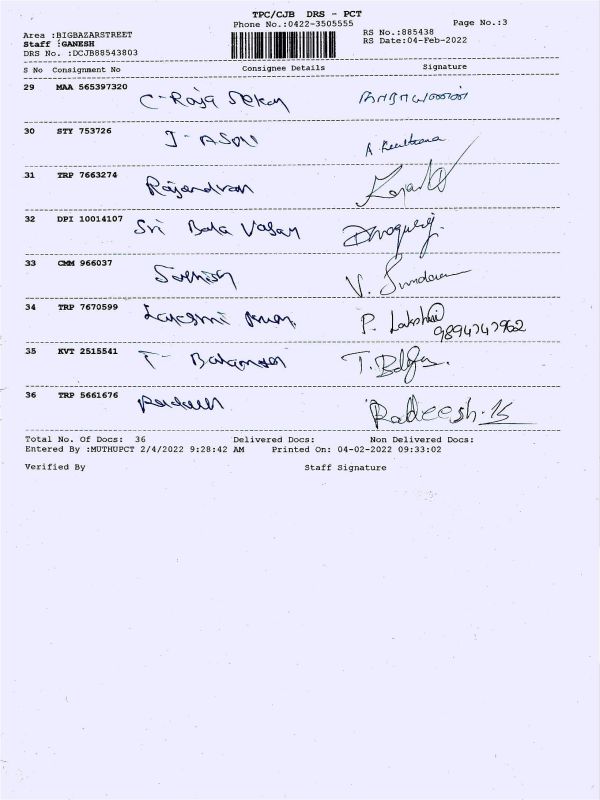 TPC/CJB DRS - PCT
Phone No.:0422-3505555
Page No.:3
Area :BIGBAZARSTREET
Staff :GANESH
DRS No. :DCJB88543803
RS No.:885438
RS Date:04-Feb-2022
S No Consignment No Consignee Details Signature
29 MAA 565397320 C-Raja Sekar
30 STY 753726 J-
31 TRP 7663274 Rajendran
32 DPI 10014107 Sri Bala
33 CMM 966037 Sathish V. Sundaram
34 TRP 7670599 Lakshmi P. Lakshmi
9894747962
35 KVT 2515541 T-
36 TRP 5661676 Radeesh.K
Total No. Of Docs: 36 Delivered Docs: Non Delivered Docs:
Entered By :MUTHUPCT 2/4/2022 9:28:42 AM Printed On: 04-02-2022 09:33:02
Verified By Staff Signature